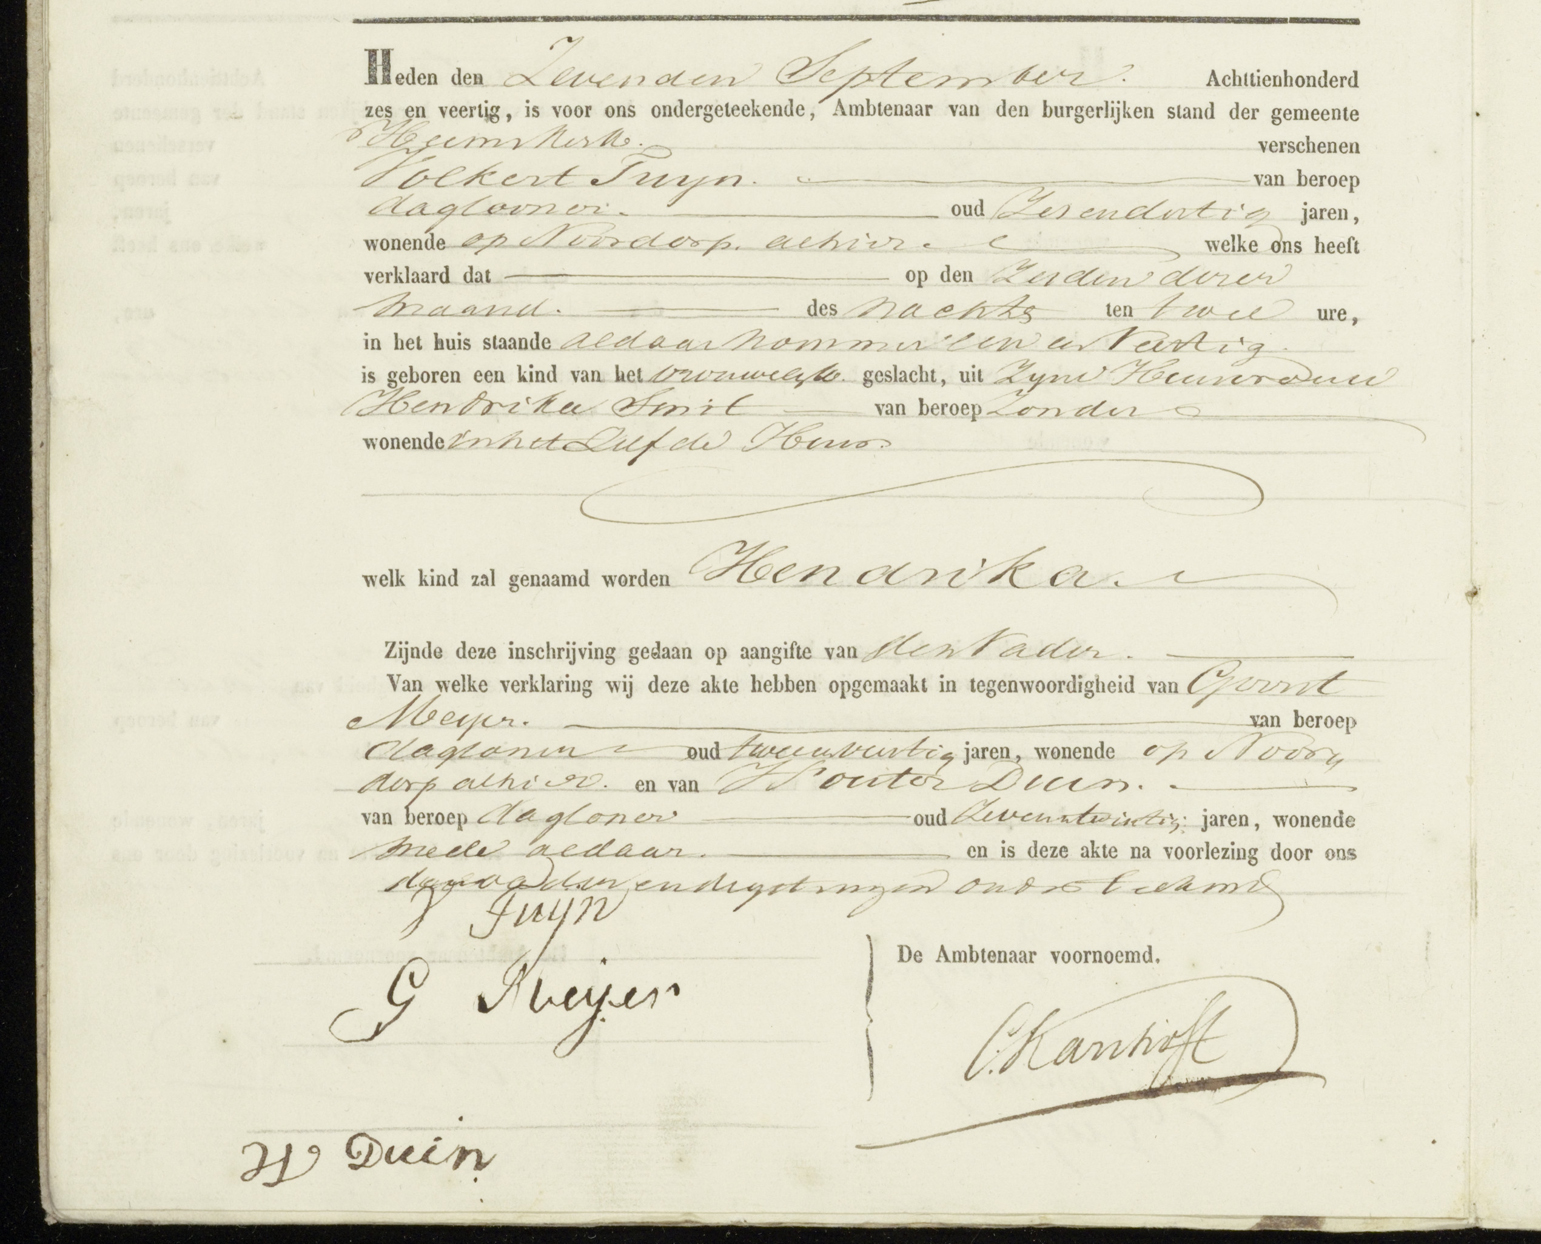 Heden den Zevenden September. Achttienhonderd
zes en veertig, is voor ons ondergeteekende, Ambtenaar van den burgerlijken stand der gemeente
Heemskerk. verschenen
Volkert Tuyn. van beroep
daglooner. oud Zesendertig jaren,
wonende op Noordorp. alhier. welke ons heeft
verklaard dat op den Zesden dezer
maand. des nachts ten twee ure,
in het huis staande aldaar nommer een en Veertig
is geboren een kind van het vrouwelyk geslacht, uit Zyne Huisvrouw
Hendrika Smit van beroep Zonder
wonende in het Zelfde Huis
welk kind zal genaamd worden Hendrika.
Zijnde deze inschrijving gedaan op aangifte van den Vader.
Van welke verklaring wij deze akte hebben opgemaakt in tegenwoordigheid van Gerrit
Meyer. van beroep
dagloner oud jaren, wonende op Noor
dorp alhier. en van Wouter Duin.
van beroep dagloner oud Zevenentwintig jaren, wonende
mede aldaar. en is deze akte na voorlezing door ons
den vader en de getuigen onderteekend
V Tuyn
De Ambtenaar voornoemd.
G Meijer
W Duin